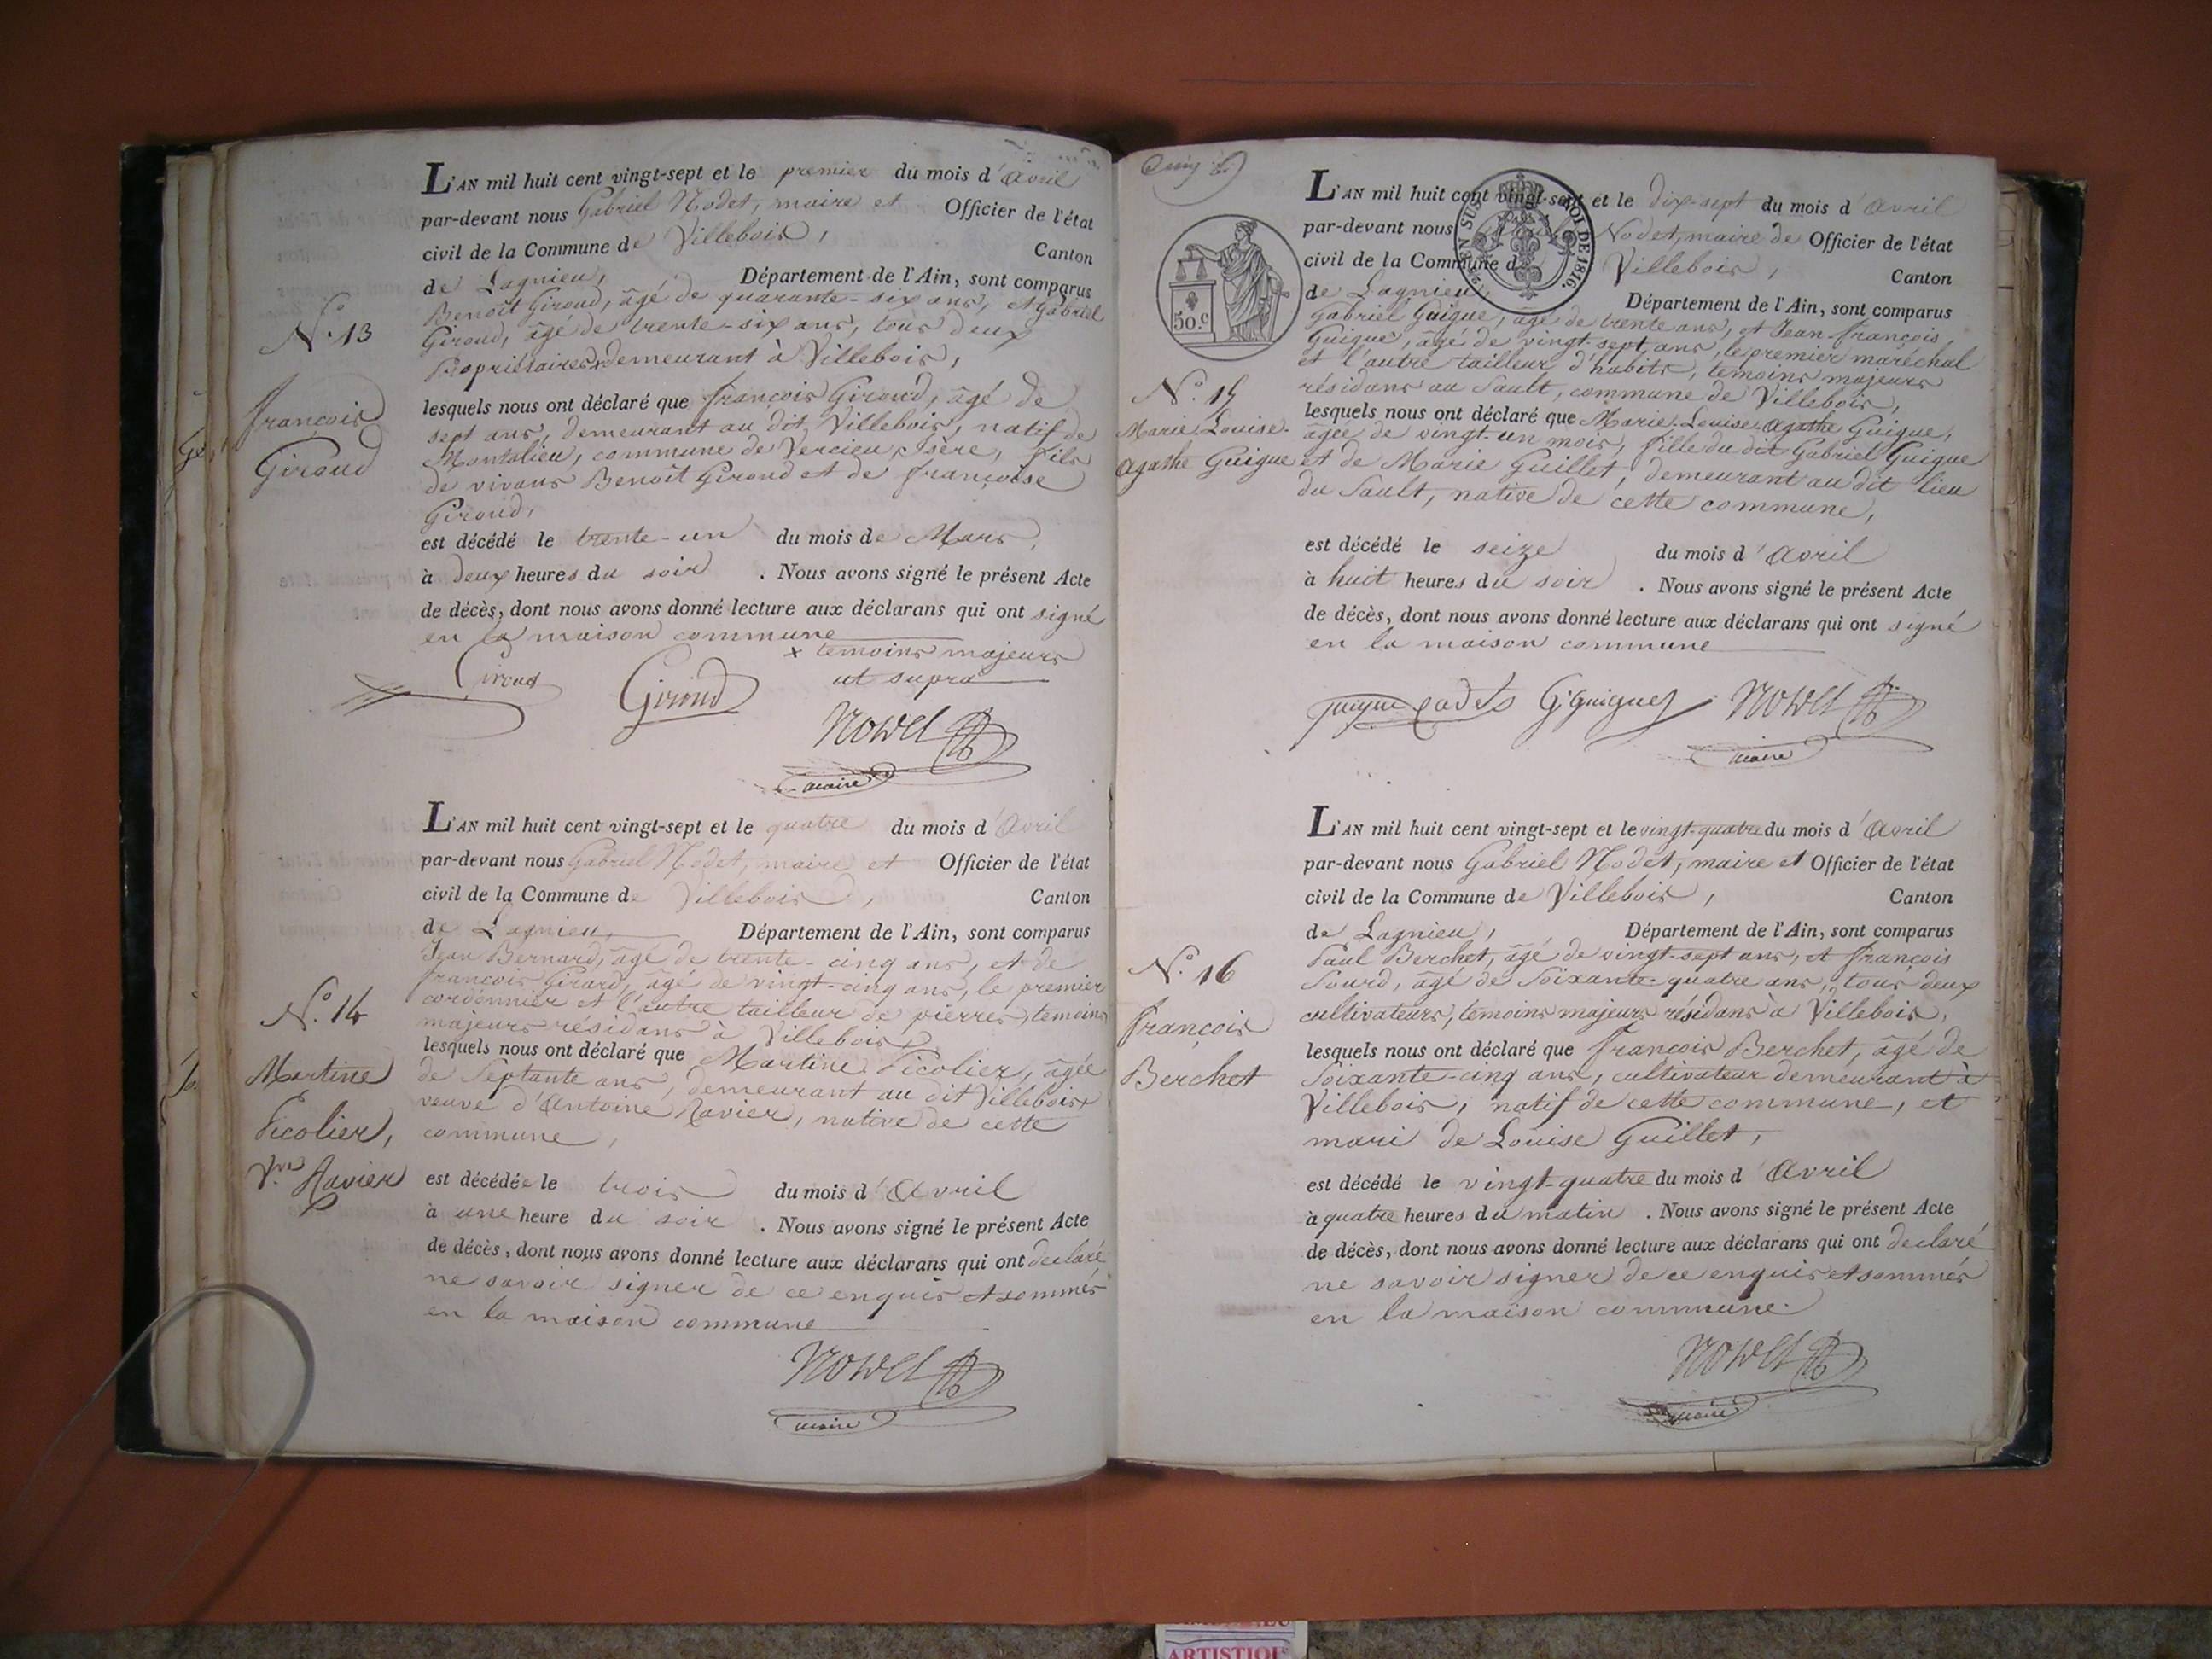 L'AN mil huit cent vingt-sept et le premier du mois d'Avril
par-devant nous Gabriel Nodet, maire et Officier de l'état
civil de la Commune de Villebois, Canton
de Lagnieu, Département de l'Ain, sont comparus
Benoît Giroud, âgé de quarante-six ans, et Gabriel
Giroud, âgé de trente-six ans, tous deux
Propriétaires x demeurant à Villebois,
lesquels nous ont déclaré que françois Giroud, âgé de
sept ans, demeurant au dit Villebois, natif de
Montalieu, commune de Vercieu, Isère, fils
de vivans Benoît Giroud et de françoise
Giroud,
est décédé le trente-un du mois de Mars,
à deux heures du soir. Nous avons signé le présent Acte
de décès, dont nous avons donné lecture aux déclarans qui ont signé
en la maison commune
x temoins majeurs
ut supra
Giroud Giroud
Nodet
maire
N.° 13
françois
Giroud
L'AN mil huit cent vingt-sept et le quatre du mois d'Avril
par-devant nous Gabriel Nodet, maire et Officier de l'état
civil de la Commune de Villebois, Canton
de Lagnieu, Département de l'Ain, sont comparus
Jean Bernard, âgé de trente-cinq ans, et de
françois Girard, âgé de vingt-cinq ans, le premier
cordonnier et l'autre tailleur de pierres, temoins
majeurs résidans à Villebois,
lesquels nous ont déclaré que Martine Ficolier, âgée
de Septante ans, demeurant au dit Villebois,
veuve d'Antoine Ravier, native de cette
commune,
est décédée le trois du mois d'Avril
à une heure du soir. Nous avons signé le présent Acte
de décès, dont nous avons donné lecture aux déclarans qui ont declaré
ne savoir signer de ce enquis et sommés
en la maison commune
Nodet
maire
N.° 14
Martine
Ficolier,
V.ve Ravier
L'AN mil huit cent vingt-sept et le dix-sept du mois d'Avril
par-devant nous Nodet, maire de Officier de l'état
civil de la Commune de Villebois, Canton
de Lagnieu, Département de l'Ain, sont comparus
Gabriel Guigue, âgé de trente ans, et Jean-françois
Guigue, âgé de vingt-sept ans, le premier maréchal
et l'autre tailleur d'habits, temoins majeurs
résidans au Sault, commune de Villebois,
lesquels nous ont déclaré que Marie-Louise-Agathe Guigue,
âgée de vingt-un mois, fille du dit Gabriel Guigue
et de Marie Guillet, demeurant au dit lieu
du Sault, native de cette commune,
est décédé le seize du mois d'Avril
à huit heures du soir. Nous avons signé le présent Acte
de décès, dont nous avons donné lecture aux déclarans qui ont signé
en la maison commune
guigue cadet G guigue Nodet
maire
ROI DE 1816.
50.c
N.° 15
Marie-Louise-
Agathe Guigue
L'AN mil huit cent vingt-sept et le vingt-quatre du mois d'Avril
par-devant nous Gabriel Nodet, maire et Officier de l'état
civil de la Commune de Villebois, Canton
de Lagnieu, Département de l'Ain, sont comparus
Paul Berchet, âgé de vingt-sept ans, et françois
Sourd, âgé de Soixante-quatre ans, tous deux
cultivateurs, temoins majeurs résidans à Villebois,
lesquels nous ont déclaré que françois Berchet, âgé de
Soixante-cinq ans, cultivateur demeurant à
Villebois, natif de cette commune, et
mari de Louise Guillet,
est décédé le vingt-quatre du mois d'Avril
à quatre heures du matin. Nous avons signé le présent Acte
de décès, dont nous avons donné lecture aux déclarans qui ont declaré
ne savoir signer de ce enquis et sommés
en la maison commune.
Nodet
maire
N.° 16
françois
Berchet
ARTISTIQUE